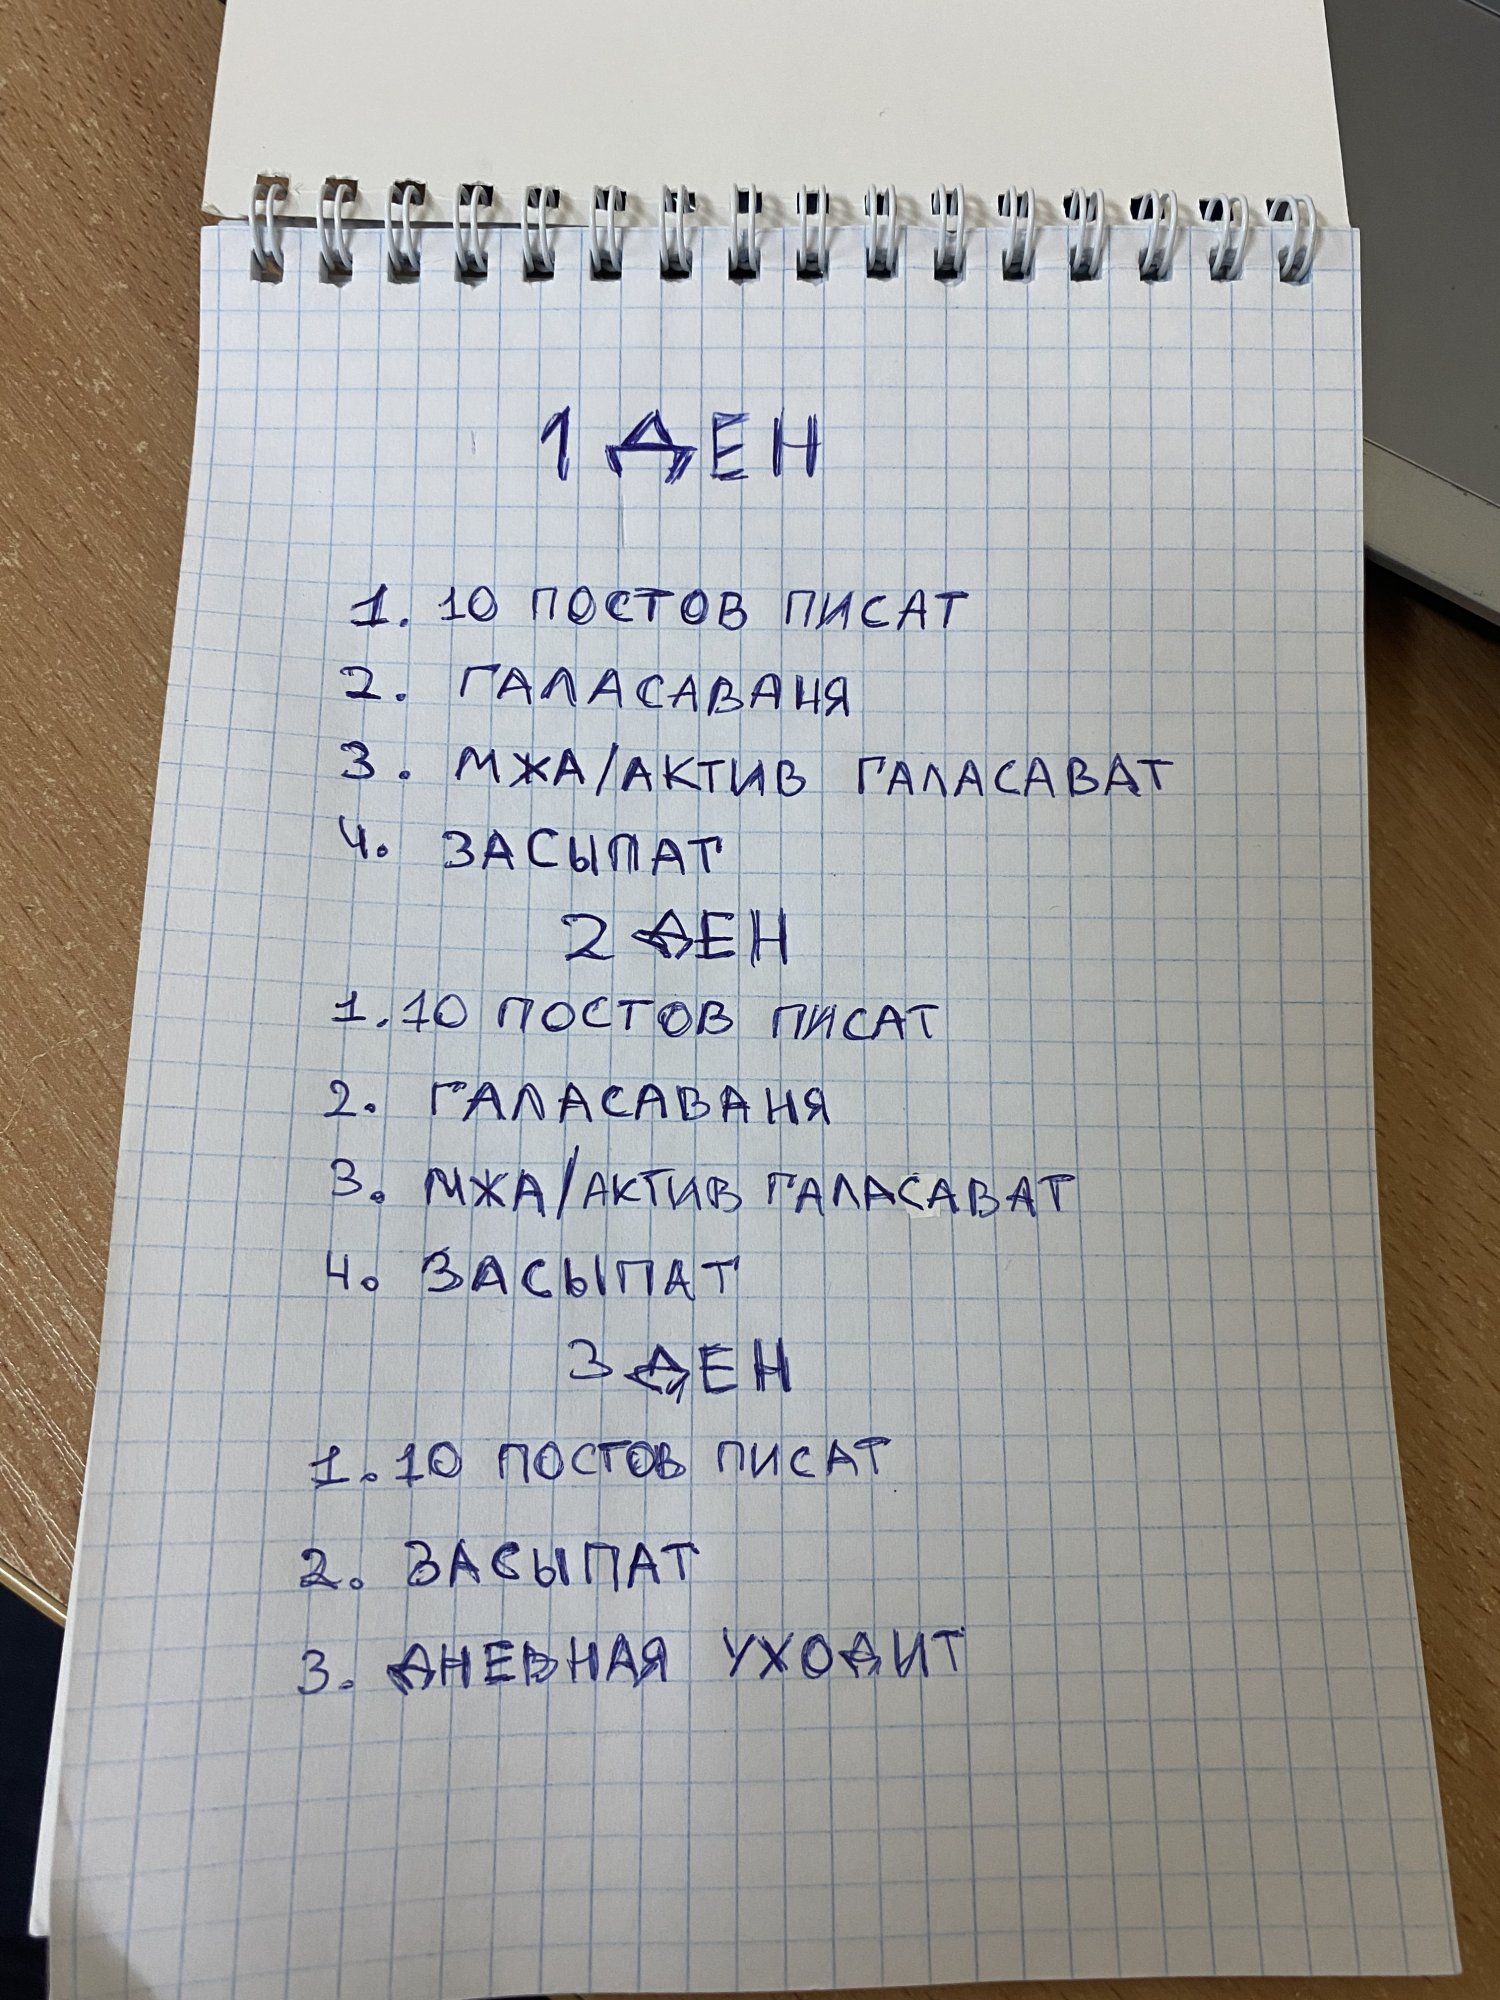 1 ДЕН
1. 10 ПОСТОВ ПИСАТ
2. ГАЛАСАВАНЯ
3. МЖА/АКТИВ ГАЛАСАВАТ
4. ЗАСЫПАТ
2 ДЕН
1. 10 ПОСТОВ ПИСАТ
2. ГАЛАСАВАНЯ
3. МЖА/АКТИВ ГАЛАСАВАТ
4. ЗАСЫПАТ
3 ДЕН
1. 10 ПОСТОВ ПИСАТ
2. ЗАСЫПАТ
3. ДНЕВНАЯ УХОДИТ